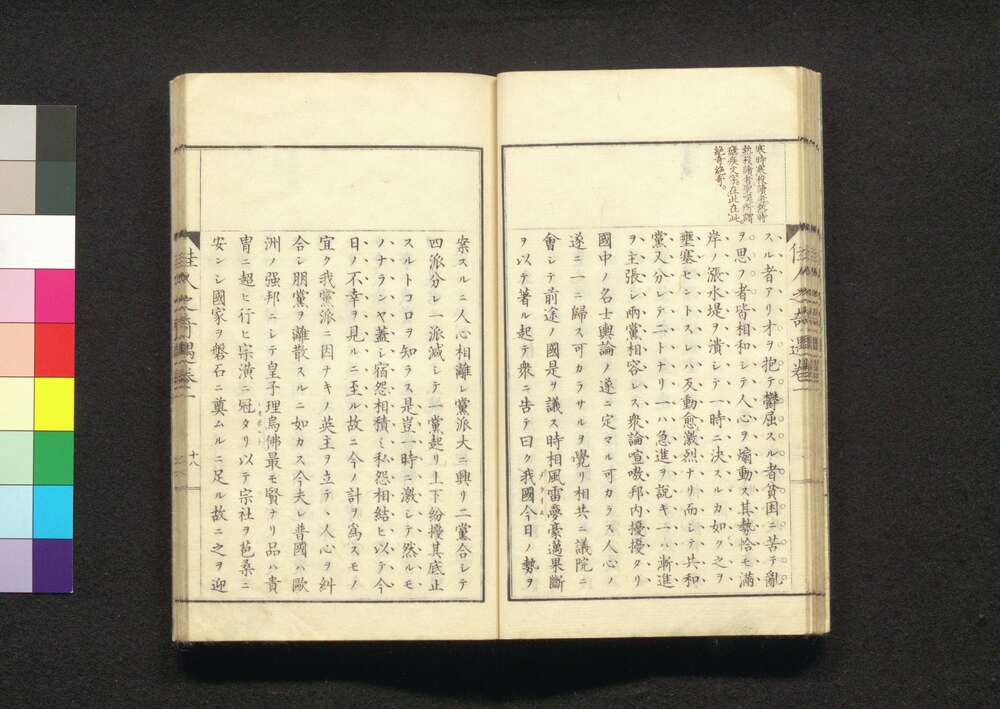 寒時寒殺讀者熱時
熱殺讀者學唄所謂
癈疾文字在此在此
絶奇絶奇。
スル者アリオヲ抱テ鬱屈スル者貧困ニ苦テ亂
ヲ思フ者皆相和シテ人心ヲ煽動ス其勢恰モ滿
岸ノ漲水堤ヲ潰シテ一時ニ決スルカ如ク之ヲ
壅塞セントスレハ反動愈激烈ナリ而シテ共和
黨又分レテ二トナリ一ハ急進ヲ説キ一ハ漸進
ヲ主張シ兩黨相容レス衆論喧嗷邦内擾擾タリ
國中ノ名士輿論ノ遂ニ定マル可カラス人心ノ
遂ニ一ニ歸ス可カラサルヲ覺リ相共ニ議院ニ
會シテ前途ノ國是ヲ議ス時相風雷夢豪邁果斷
ヲ以テ著ル起テ衆ニ告テ曰ク我國今日ノ勢ヲ
佳人之奇遇卷二
案スルニ人心相離レ黨派大ニ興リ二黨合レテ
四派分レ一派減シテ一黨起リ上下紛擾其底止
スルトコロヲ知ラス是豈一時ニ激シテ然ルモ
ノナランヤ蓋シ宿怨相積ミ私怨相結ヒ以テ今
日ノ不幸ヲ見ルニ至ル故ニ今ノ計ヲ爲スモノ
宜ク我黨派ニ因ナキノ英主ヲ立テ、人心ヲ糾
合シ朋黨ヲ離散スルニ如カス今夫レ普國ハ歐
洲ノ强邦ニシテ皇子理烏佛最モ賢ナリ品ハ貴
冑ニ超ヒ行ヒ宗潢ニ冠タリ以テ宗社ヲ苞桑ニ
安ンシ國家ヲ磐石ニ奠ムルニ足ル故ニ之ヲ迎
佳人之奇遇卷二
十八